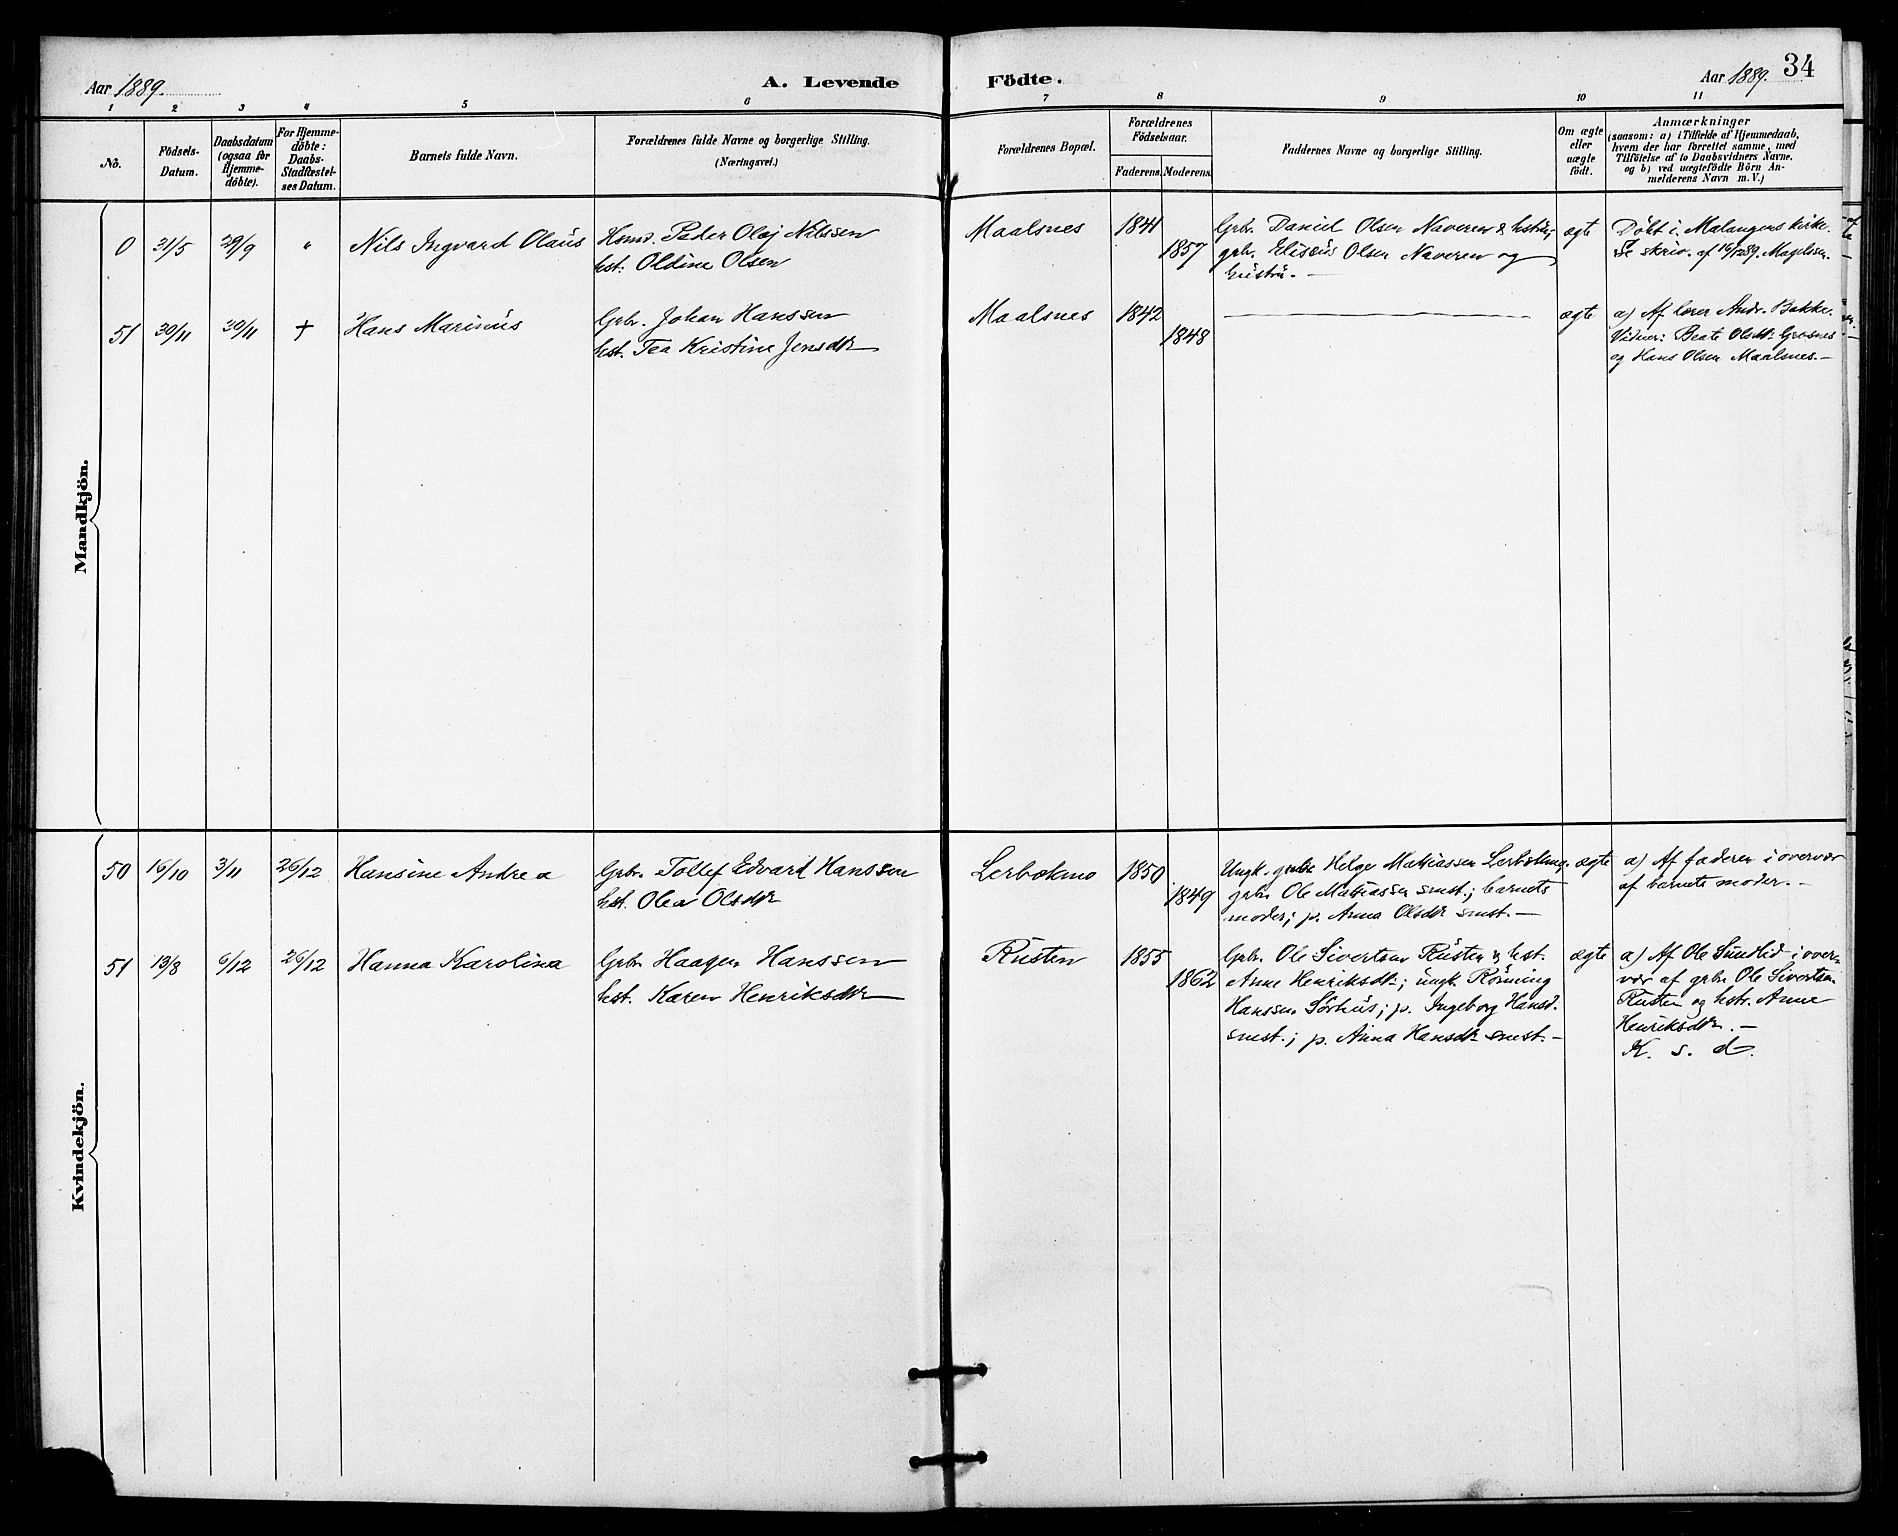 Aar 1889.
A. Levende Födte.
Aar 1889. 34
1 2 3 4 5 6 7 8 9 10 11
No.
Födsels-
Datum.
Daabsdatum
(ogsaa for
Hjemme-
døbte).
For Hjemme-
døbte:
Daabs-
Stadfæstel-
ses Datum.
Barnets fulde Navn.
Forældrenes fulde Navne og borgerlige Stilling.
(Næringsvei.)
Forældrenes Bopæl.
Forældrenes
Födselsaar.
Faderens. Moderens.
Faddernes Navne og borgerlige Stilling.
Om ægte
eller
uægte
födt.
Anmærkninger
(saasom: a) i Tilfælde af Hjemmedaab,
hvem der har forrettet samme, med
Tilföielse af to Daabsvidners Navne.
og b) ved uægtefödte Börn An-
melderens Navn m. V.)
Mandkjön.
0 31/5 29/9 " Nils Ingvard Olaüs
Peder Olaj Nilssen
hst. Oldine Olsen
Maalsnes 1841
1857
Gbr. Daniel Olsen Naveren & hstrü;
gbr. Eliseüs Olsen Naveren og
hüstrü. —
ægte
Döbt i Malangens kirke.
Se skriv. af 16/12 89. Magelssen.
51 30/11 30/11 + Hans Marinüs
Gbr. Johan Hanssen
hst. Tea Kristine Jensdtr
Maalsnes 1842
1848
—
ægte
a) Af lærer Andr. Bakke.
Vidner: Beate Olsdtr. Grosnes
og Hans Olsen Maalsnes. —
Kvindekjön.
50 16/10 3/11 26/12 Hansine Andrea
Gbr. Tollef Edvard Hanssen
hst. Olea Olsdtr
Lerbekmo 1850
1849
Ungk. gbr. Helge Matiassen Lerbekmo;
gbr. Ole Matiassen smst.; barnets
moder; p. Anna Olsdtr smst. —
ægte
a) Af faderen i overvær
af barnets moder. —
51 13/8 6/12 26/12 Hanna Karolina
Gbr. Haagen Hanssen
hst. Karen Henriksdtr
Rüsten 1855
1862
Gbr. Ole Sivertsen Rüsten & hst.
Anne Henriksdtr; üngk. Rönning
Hanssen Sörhüs; p. Ingeborg Hansd.
smst.; p. Anna Hansdtr smst. —
ægte
a) Af Ole Sundlid i over-
vær af gbr. Ole Sivertsen
Rüsten og hstr. Anne
Henriksdtr. —
K. s. d.